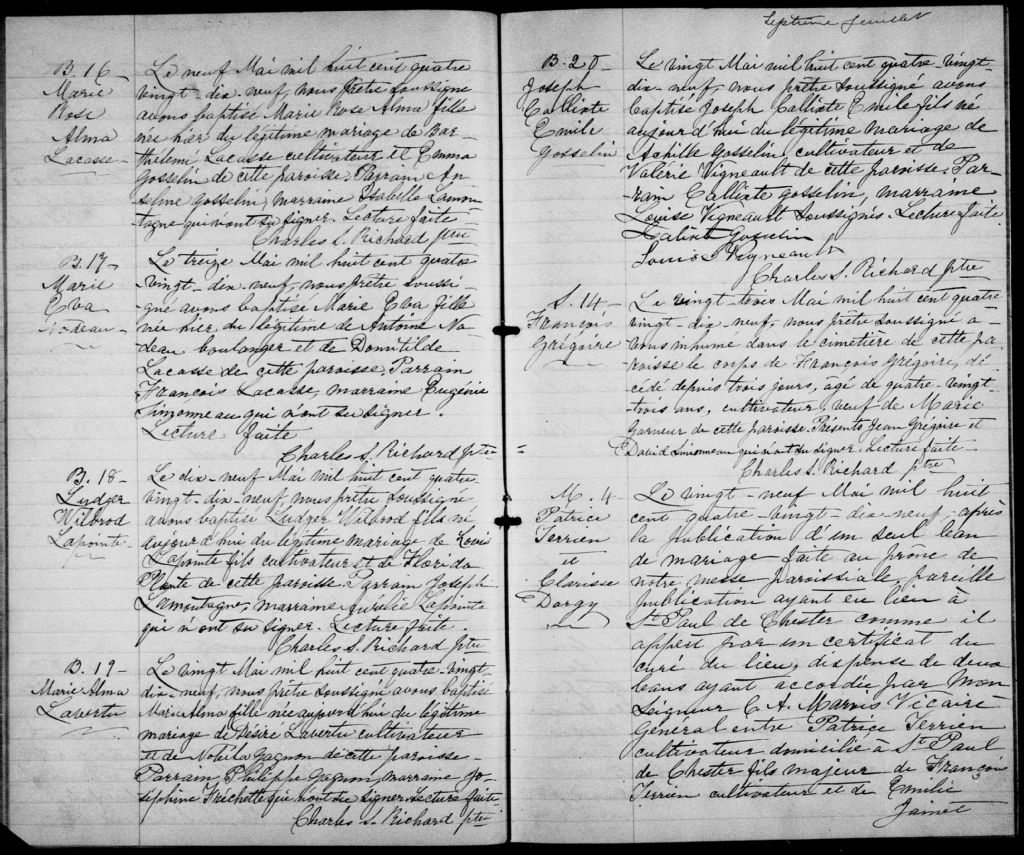 B. 16
Marie
Rose
Alma
Lacasse
Le neuf Mai mil huit cent quatre
vingt-dix-neuf, nous prêtre soussigné
avons baptisé Marie Rose Alma fille
née hier du légitime mariage de Bar-
thélemi Lacasse cultivateur et Emma
Gosselin de cette paroisse. Parrain An-
selme Gosselin, marraine Isabelle Lamon-
tagne qui n'ont su signer. Lecture faite
Charles S. Richard ptre
B. 17
Marie
Eva
Nadeau
Le treize Mai mil huit cent quatre
vingt-dix-neuf, nous prêtre soussi-
gné avons baptisé Marie Eva fille
née hier du légitime de Antoine Na-
deau boulanger et de Domitilde
Lacasse de cette paroisse. Parrain
François Lacasse, marraine Eugénie
Simonneau qui n'ont su signer.
Lecture faite
Charles S. Richard ptre
B. 18
Ludger
Wilbrod
Lapointe
Le dix-neuf Mai mil huit cent quatre
vingt-dix-neuf, nous prêtre soussigné
avons baptisé Ludger Wilbrod fils né
aujourd'hui du légitime mariage de Louis
Lapointe fils cultivateur et de Florida
Plante de cette paroisse. Parrain Joseph
Lamontagne, marraine Aurélie Lapointe
qui n'ont su signer. Lecture faite.
Charles S. Richard ptre
B. 19
Marie Alma
Labertu
Le vingt Mai mil huit cent quatre-vingt
dix-neuf, nous prêtre soussigné avons baptisé
Marie Alma fille née aujourd'hui du légitime
mariage de Désiré Labertu cultivateur
et de Gagnon de cette paroisse.
Parrain Philippe Gagnon, marraine Jo-
séphine Fréchette qui n'ont su signer. Lecture faite
Charles S. Richard ptre
Septième feuillet
B. 20
Joseph
Callixte
Emile
Gosselin
Le vingt Mai mil huit cent quatre-vingt-
dix-neuf, nous prêtre soussigné avons
baptisé Joseph Callixte Emile fils né
aujourd'hui du légitime mariage de
Achille Gosselin, cultivateur et de
Valérie Vigneault de cette paroisse. Par-
rain Callixte Gosselin, marraine
Louise Vigneault soussignés. Lecture faite
Calixt Gosselin
Louise Vigneault
Charles S. Richard ptre
S. 14
François
Grégoire
Le vingt-trois Mai mil huit cent quatre
vingt-dix-neuf, nous prêtre soussigné a-
vons inhumé dans le cimetière de cette pa-
roisse le corps de François Grégoire, dé-
cédé depuis trois jours, agé de quatre-vingt-
trois ans, cultivateur, veuf de Marie
Garneur de cette paroisse. Présents Jean Grégoire et
David Simonneau qui n'ont su signer. Lecture faite
Charles S. Richard ptre
M. 4
Patrice
Terrien
et
Clarisse
Dorgy
Le vingt-neuf Mai mil huit
cent quatre-vingt-dix-neuf, après
la publication d'un seul ban
de mariage faite au prône de
notre messe paroissiale, pareille
publication ayant eu lieu à
St Paul de Chester comme il
appert par un certificat du
curé du lieu, dispense de deux
bans ayant accordée par Mon
Seigneur C. A. Marois Vicaire
Général entre Patrice Terrien
cultivateur domicilié à St Paul
de Chester fils majeur de François
Terrien cultivateur et de Emilie
Jainet